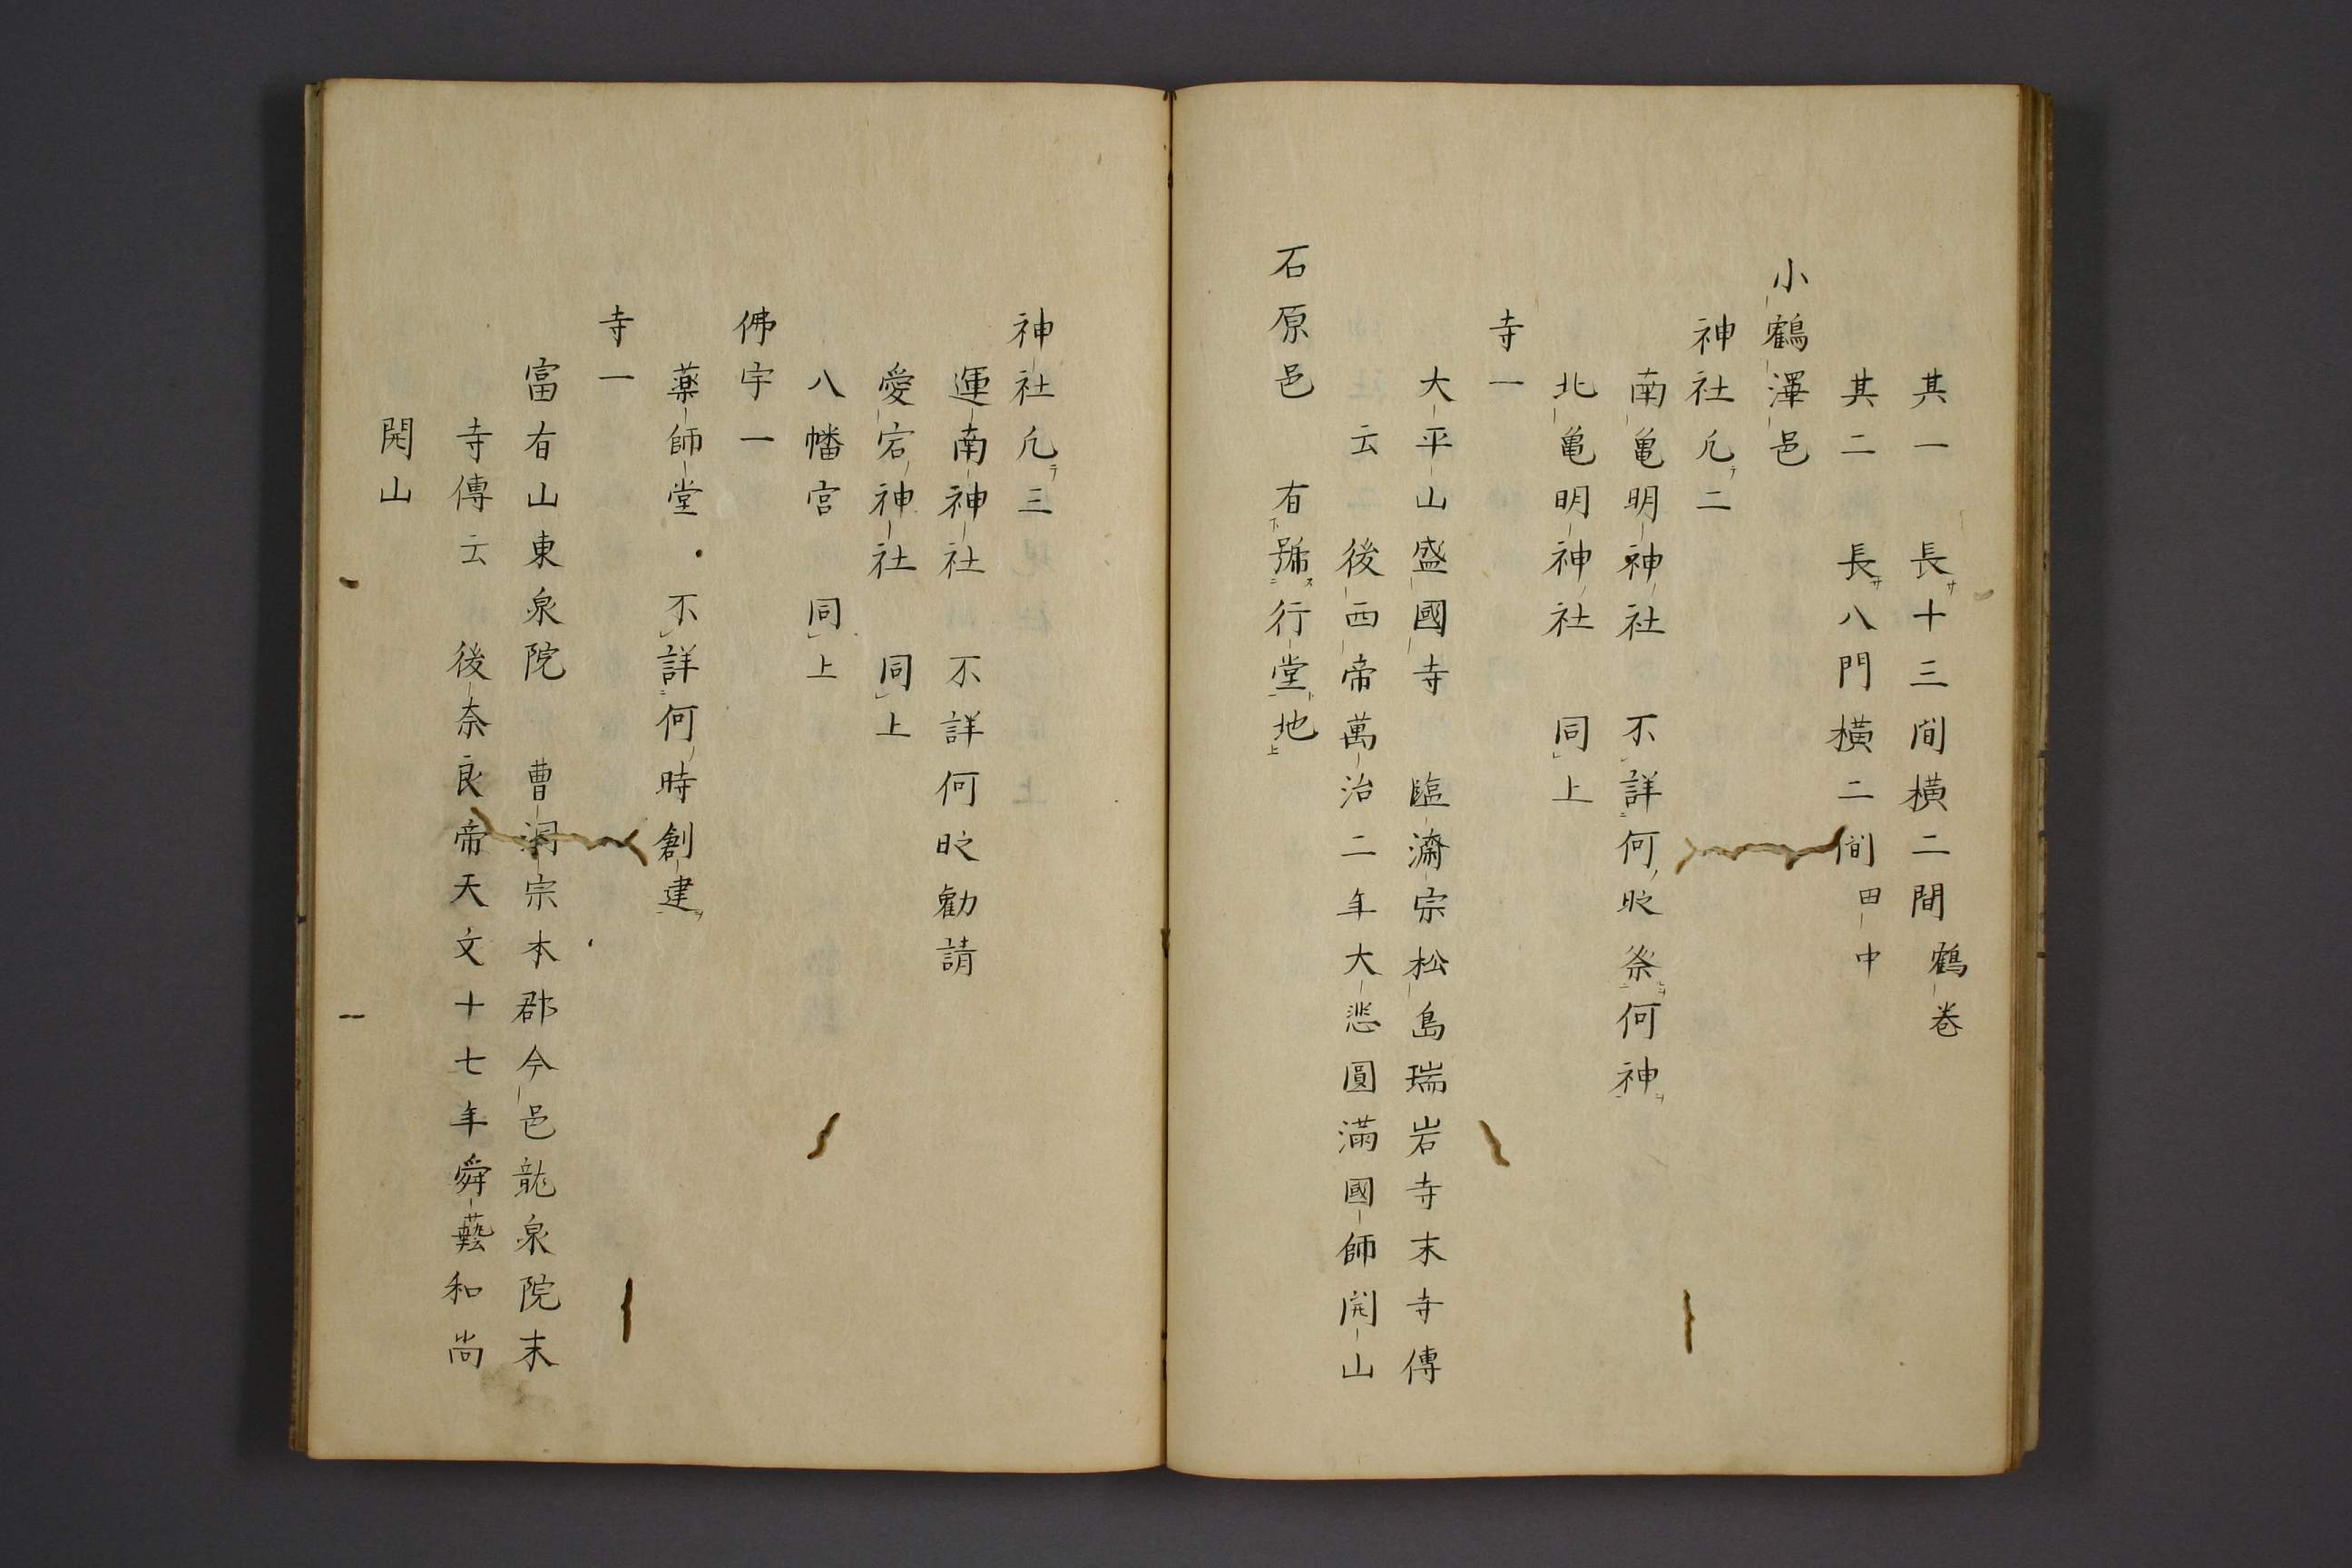 其一 長サ十三間横二間 鶴巻
其二 長サ八門横二間 田中
小鶴澤邑
神社凢テ二
南亀明神社 不詳何時祭何神
北亀明神社 同上
寺一
大平山盛國寺 臨濟宗松島瑞岩寺末寺傳
云 後西帝萬治二年大悲圓滿國師開山
石原邑 有號行堂地
神社凢テ三
運南神社 不詳何时勸請
愛宕神社 同上
八幡宮 同上
佛宇一
薬師堂 不詳何時創建
寺一
富有山東泉院 曹洞宗本郡今邑龍泉院末
寺傳云 後奈良帝天文十七年舜藝和尚
開山